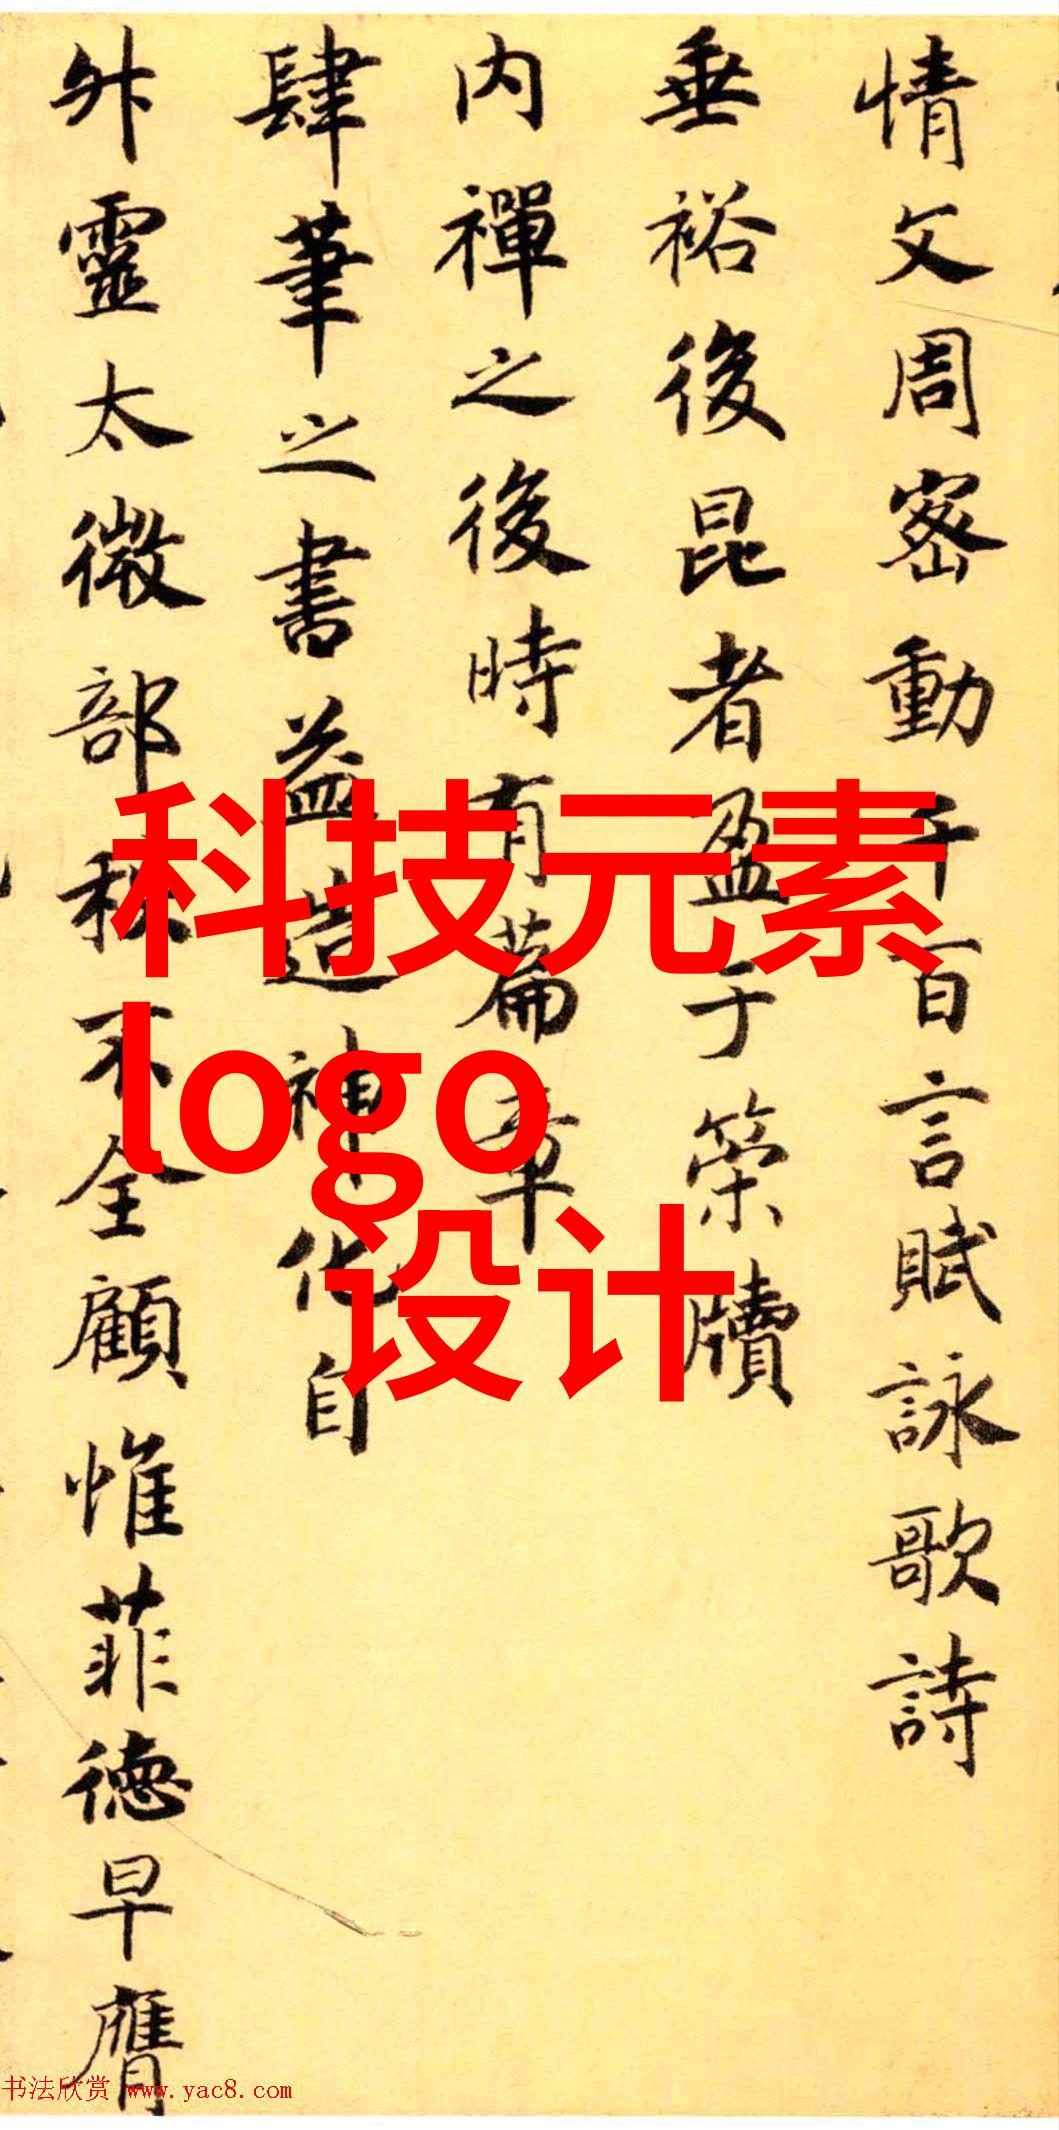 情文周密動千百言賦詠歌詩
垂裕後昆者盈于策牘
内禪之後時有篇章
肆筆之書益造神化自
外靈太微部秩不全顧惟菲德早膺
科技元素
logo
设计
书法欣赏 www.yac8.com